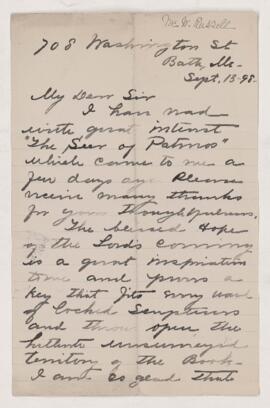 Mr W. Russell
708 Washington St
Bath, Me.
Sept. 13-98.
My Dear Sir
I have read
with great interest
"The Seer of Patmos"
which came to me a
few days ago Please
receive many thanks
for your thoughtfulness.
The blessed Hope
of the Lord's coming
is a great inspiration
to me and proves a
key that fits every ward
of locked Scriptures
and throws open the
hitherto unsurveyed
territory of the Book.
I am so glad that